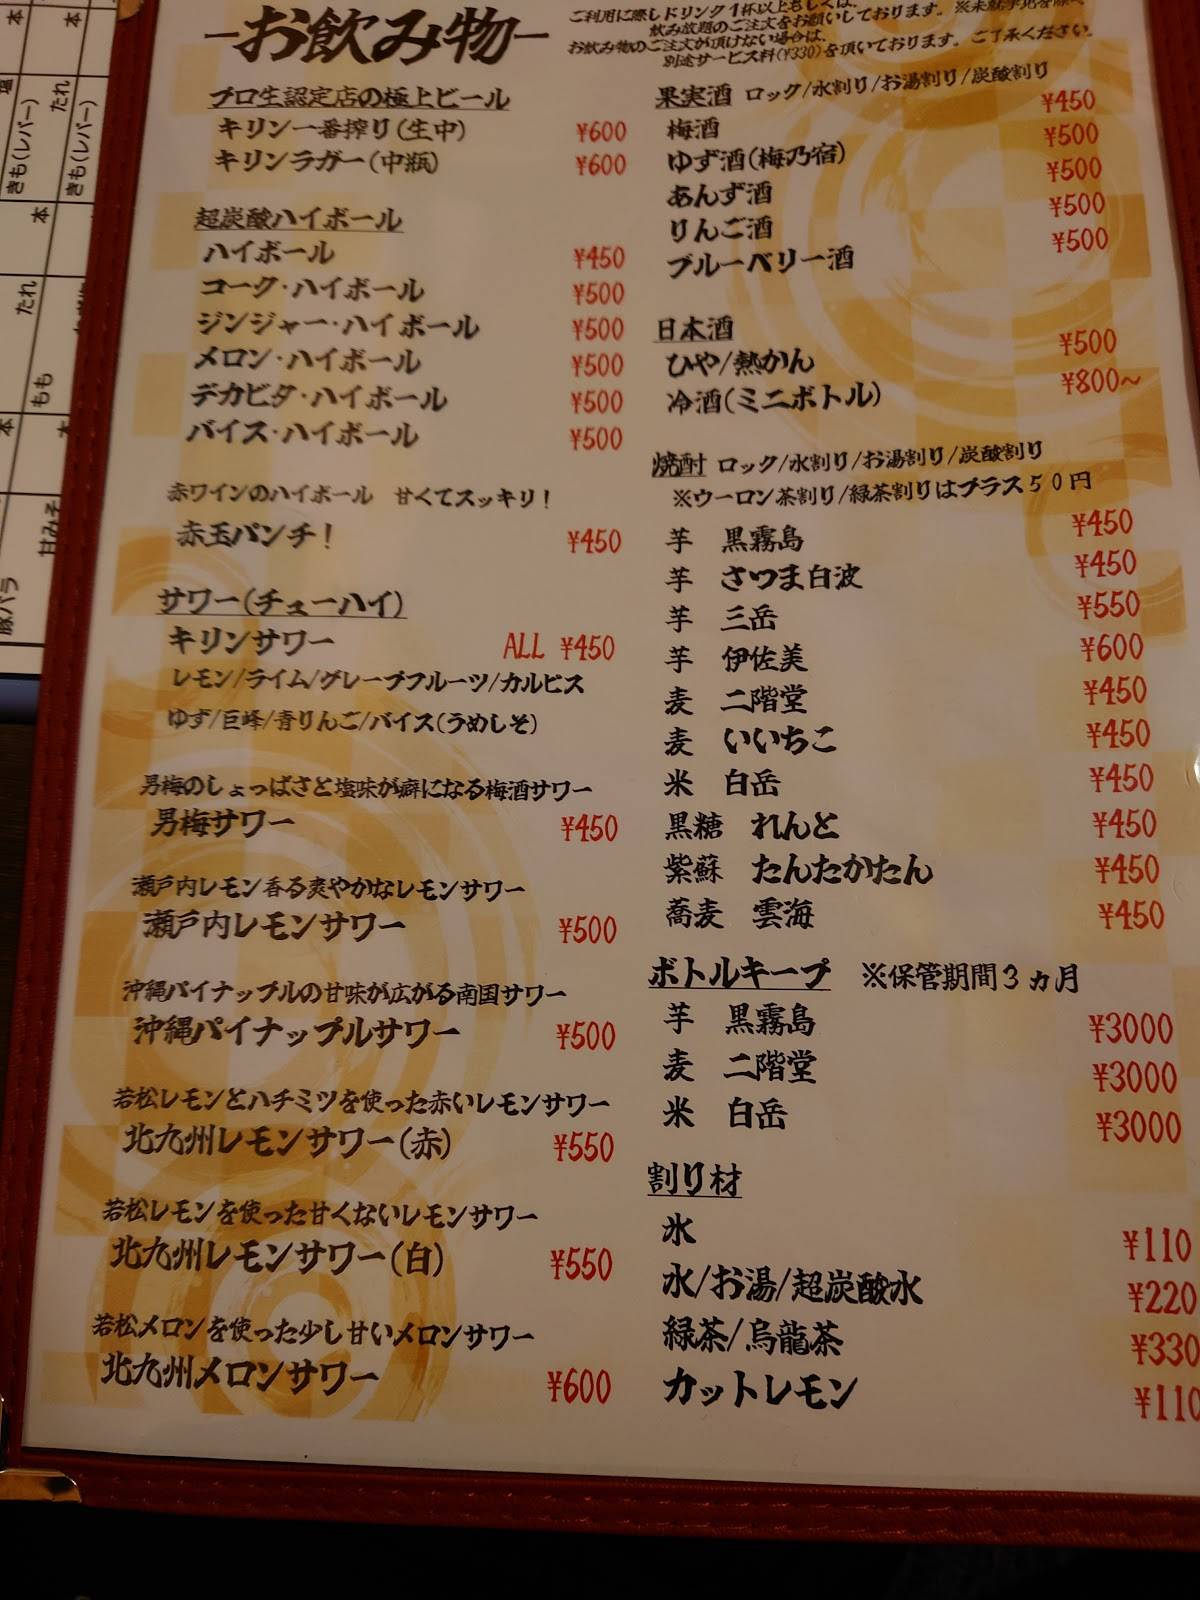 お飲み物
ご利用に際しドリンク1杯以上もしくは、
飲み放題のご注文をお願いしております。
お飲み物のご注文が頂けない場合は、
別途サービス料(¥330)を頂いております。ご了承ください。
プロ生認定店の極上ビール
キリン一番搾り(生中) ¥600
キリンラガー(中瓶) ¥600
超炭酸ハイボール
ハイボール ¥450
コーク・ハイボール ¥500
ジンジャー・ハイボール ¥500
メロン・ハイボール ¥500
デカビタ・ハイボール ¥500
バイス・ハイボール ¥500
赤ワインのハイボール 甘くてスッキリ!
赤玉パンチ! ¥450
サワー(チューハイ)
キリンサワー ALL ¥450
レモン/ライム/グレープフルーツ/カルピス
ゆず/巨峰/青りんご/バイス(うめしそ)
男梅のしょっぱさと塩味が癖になる梅酒サワー
男梅サワー ¥450
瀬戸内レモン香る爽やかなレモンサワー
瀬戸内レモンサワー ¥500
沖縄パイナップルの甘味が広がる南国サワー
沖縄パイナップルサワー ¥500
若松レモンとハチミツを使った赤いレモンサワー
北九州レモンサワー(赤) ¥550
若松レモンを使った甘くないレモンサワー
北九州レモンサワー(白) ¥550
若松メロンを使った少し甘いメロンサワー
北九州メロンサワー ¥600
果実酒 ロック/水割り/お湯割り/炭酸割り
梅酒 ¥450
ゆず酒(梅乃宿) ¥500
あんず酒 ¥500
りんご酒 ¥500
ブルーベリー酒 ¥500
日本酒
ひや/熱かん ¥500
冷酒(ミニボトル) ¥800~
焼酎 ロック/水割り/お湯割り/炭酸割り
※ウーロン茶割り/緑茶割りはプラス50円
芋 黒霧島 ¥450
芋 さつま白波 ¥450
芋 三岳 ¥550
芋 伊佐美 ¥600
麦 二階堂 ¥450
麦 いいちこ ¥450
米 白岳 ¥450
黒糖 れんと ¥450
紫蘇 たんたかたん ¥450
蕎麦 雲海 ¥450
ボトルキープ ※保管期間3ヵ月
芋 黒霧島 ¥3000
麦 二階堂 ¥3000
米 白岳 ¥3000
割り材
氷 ¥110
水/お湯/超炭酸水 ¥220
緑茶/烏龍茶 ¥330
カットレモン ¥110
本
塩
きも(レバー)
本
たれ
もも
本
豚バラ
たれ
きも(レバー)
甘みそ